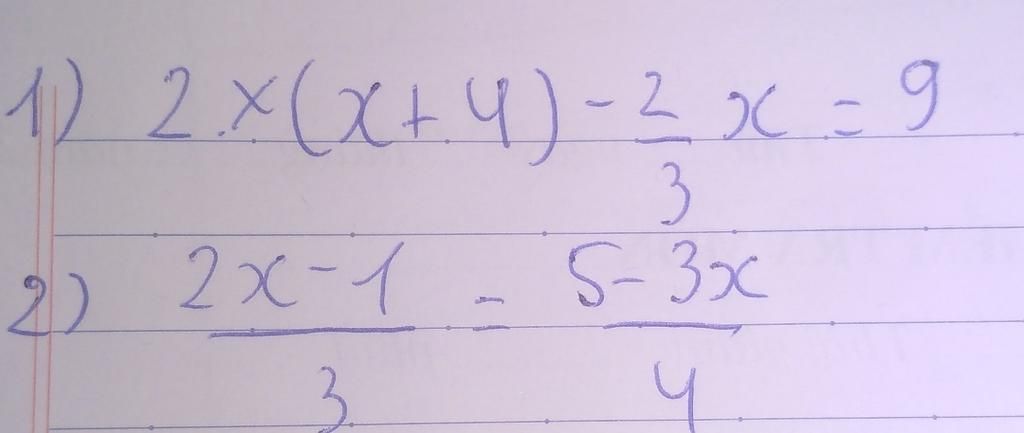 1) 2 × (x + 4) - 2/3 x = 9
2) (2x - 1)/3 = (5 - 3x)/4